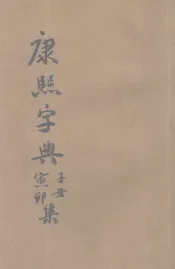 康熙字典
子丑
寅卯
集